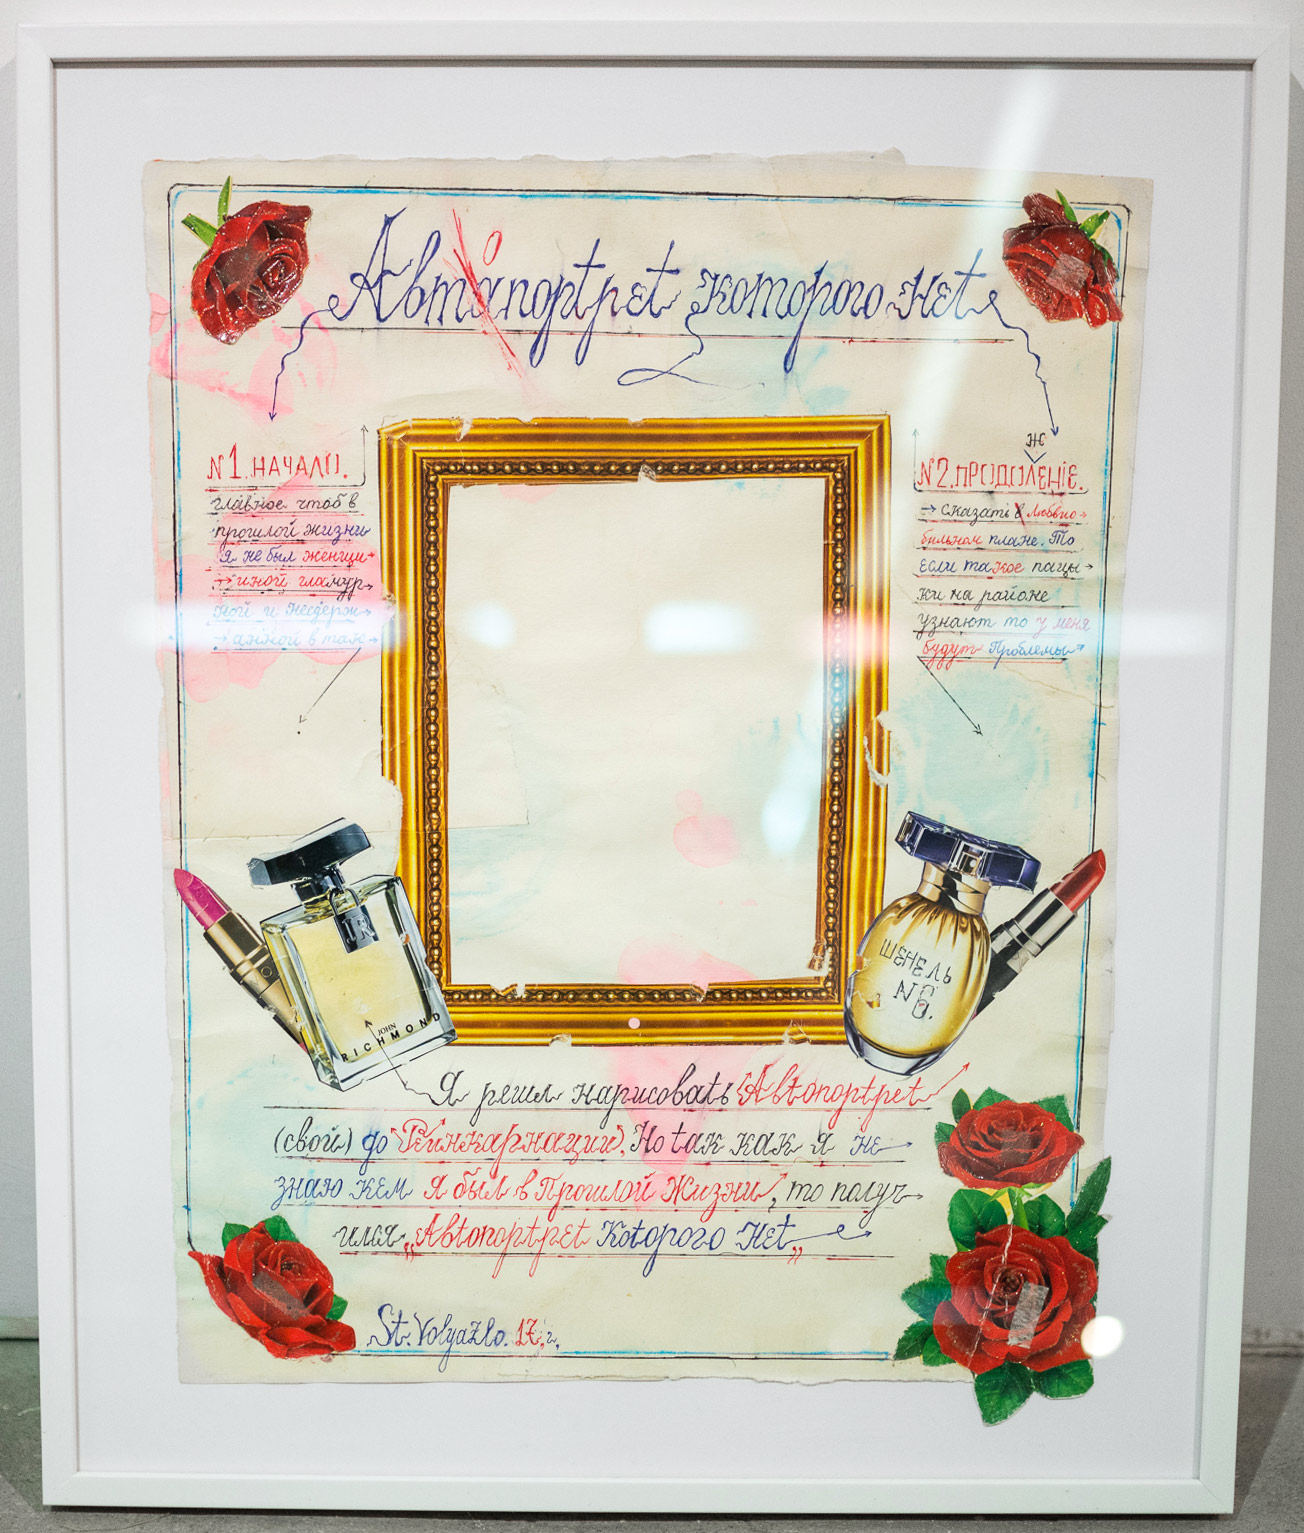 о
Автапортрет которого Нет
№1. НАЧАЛО.
главное чтоб в
прошлой жизни
я не был женщи→
→ иной гламур→
ной и несдерж→
→ анной в таю→
Ж
№2. ПРОДОЛЕНİЕ.
→ сказать в любвио→
бильном плане. То
если такое пацы→
ки на районе
узнают то у меня
будут Проблемы→
I R
JOHN
RICHMOND
ШЕНЕЛЬ
№6.
Я решил нарисовать Автопортрет
(свой) до "Реинкарнации". Но так как я не→
знаю кем я был в Прошлой Жизни, то получ→
ился „Автопортрет Которого Нет„
St. Volyazlo. 17.г.